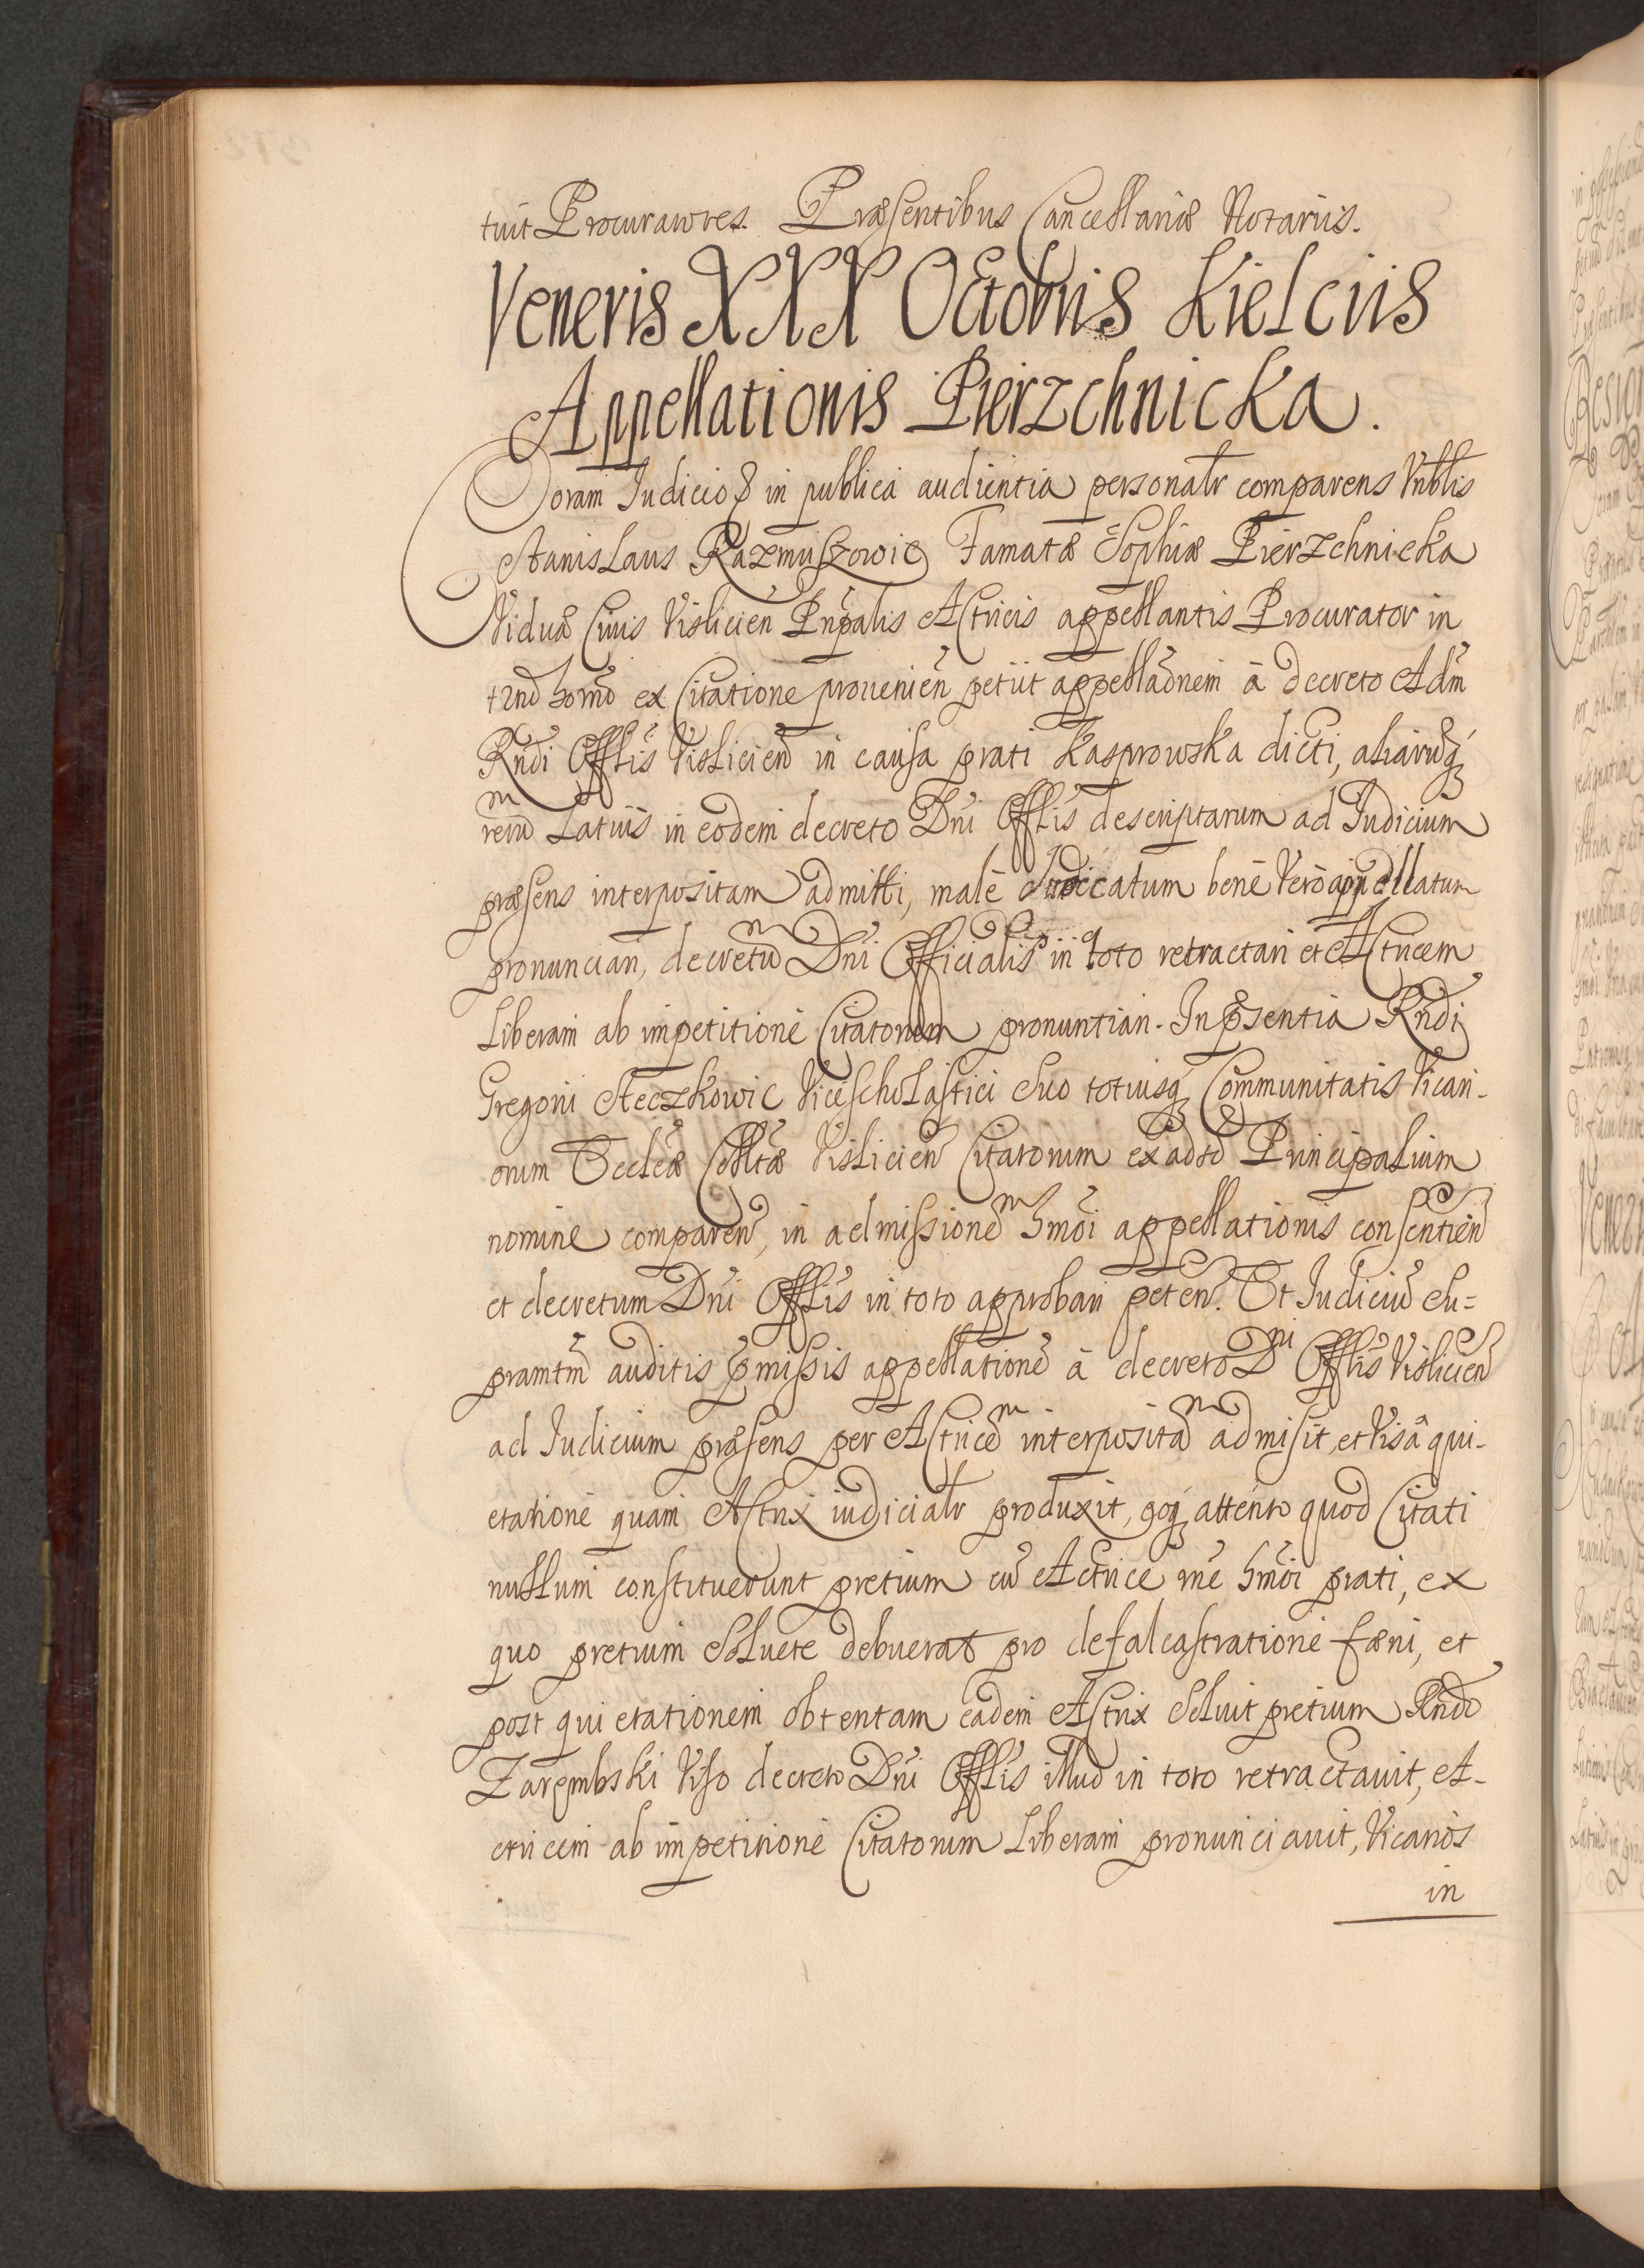 tuit Procuratores. Præsentibus Cancellariæ Notariis.
Veneris XXX Octobris Kielciis
Appellationis Pierzchnicka.
Coram Judicio & in publica audientia personalr comparens Vnblis
Stanislaus Razmuszowic Famatæ Sophiæ Pierzchnicka
Viduæ Civis Vislicien Prnpalis Actricis appellantis Procurator in
trnō hōmō ex Citatione provenien̄ petiit appellaōnem à decreto Adm̄
Rn̄di Offlis Vislicien̄ in causa prati Kasprowska dicti, aliarumq́
rerum latius in eodem decreto Dn̄i Offlis descriptarum ad Judicium
præsens interpositam admitti, malè Judicatum benè verò appellatum
pronunciari, decretum Dn̄i Officialis in toto retractari et Actricem
liberam ab impetitione Citatorum pronuntiari. In p̄sentia Rn̄di
Gregorii Steczkowic Vicescholastici suo totiusq́ Communitatis Vicari-
orum Eccleæ Colltæ Vislicien̄ Citatorum ex adso Principalium
nomine comparen̄, in admissionem hm̄oi appellationis consentien̄
et decretum Dn̄i Offlis in toto approbari peten̄. Et Judiciū su-
pramtm̄ auditis p̄missis appellationē à decreto Dni Offlis Vislicien̄
ad Judicium præsens per Actricem interpositam admisit, et visâ qui-
etatione quam Actrix iudicialr produxit, eoq́ attento quod Citati
nullum constituerunt pretium cū Actrice rn̄e hm̄oi prati, ex
quo pretium solvere debuerat pro defalcastratione fæni, et
post quietationem obtentam eadem Actrix solvit pretium Rn̄do
Zarembski viso decreto Dn̄i Offlis illud in toto retractavit, A-
ctricem ab impetitione Citatorum liberam pronunciavit, Vicarios
in